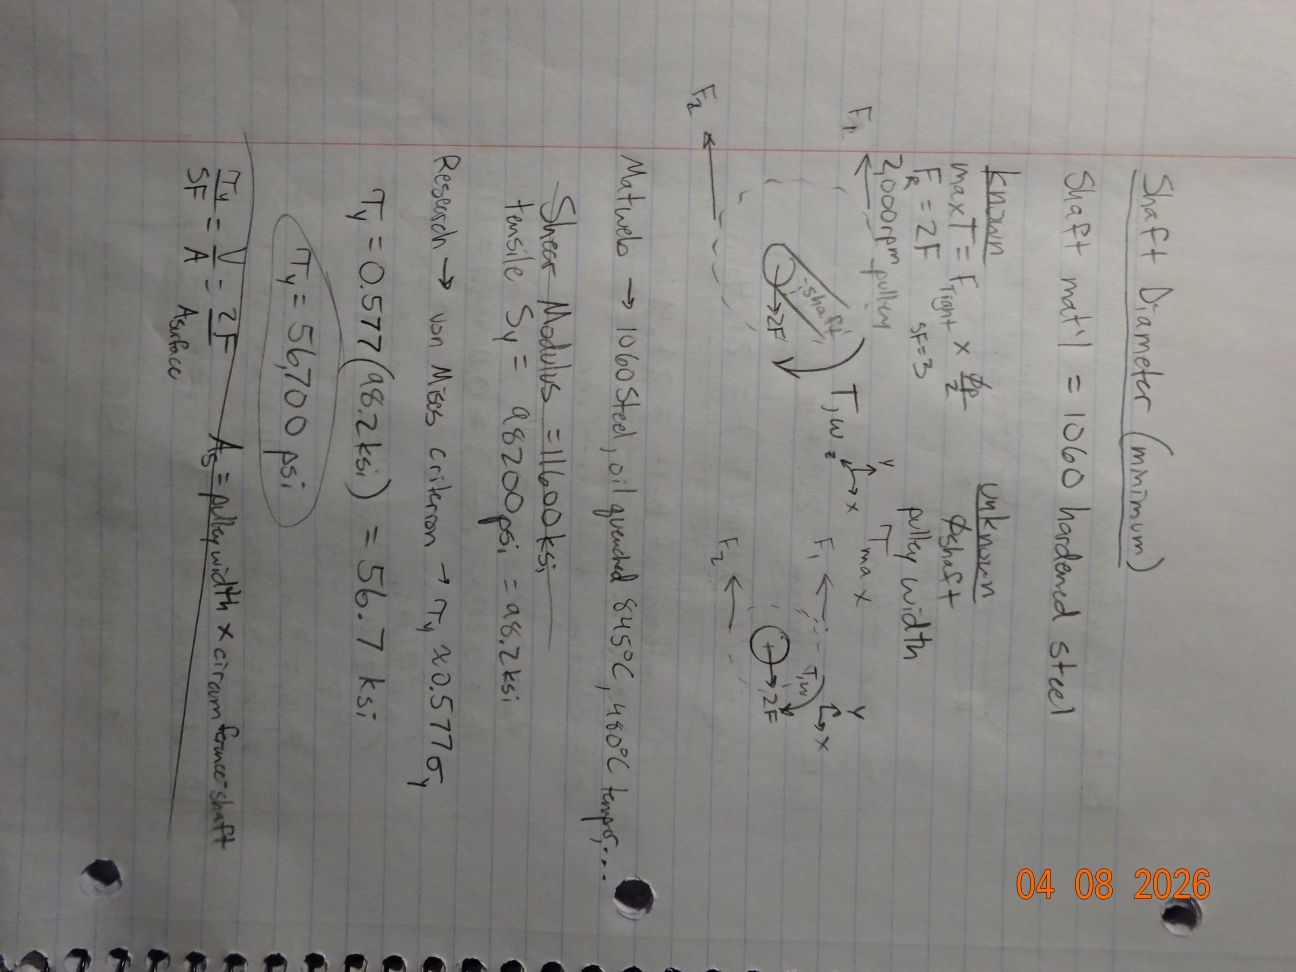 Shaft Diameter (minimum)
Shaft mat'l = 1060 hardened steel
known
unknown
max T = F_tight × ϕp/2
ϕshaft
F_R = 2F
SF = 3
pulley width
2,000rpm pulley
T max
F₁
shaft
T, ω
2F
F₂
y
x
z
F₁
T, ω
2F
F₂
y
x
Matweb → 1060 Steel, oil quenched 845°C, 480°C temper,...
Shear Modulus = 11600ksi
tensile Sy = 98200psi = 98.2ksi
Research → von Mises criterion → τy ≈ 0.577σy
τy = 0.577(98.2ksi) = 56.7 ksi
τy = 56,700 psi
τy/SF = V/A = 2F/A surface
As = pulley width × circumference shaft
04 08 2026